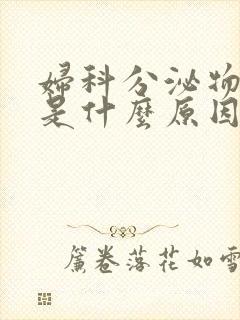 婦科分泌物
是什麼原因
簾卷落花如雪